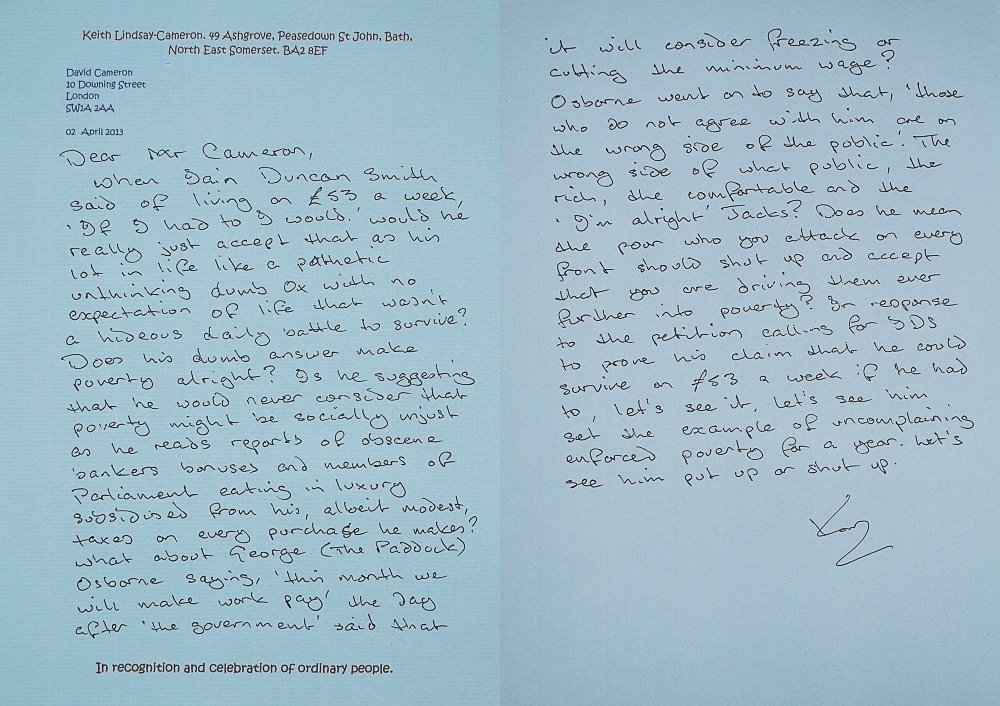 Keith Lindsay-Cameron. 49 Ashgrove, Peasedown St John, Bath,
North East Somerset. BA2 8EF
David Cameron
10 Downing Street
London
SW1A 2AA
02 April 2013
Dear Mr Cameron,
When Iain Duncan Smith
said of living on £53 a week,
'If I had to I would.' would he
really just accept that as his
lot in life like a pathetic
unthinking dumb Ox with no
expectation of life that wasn't
a hideous daily battle to survive?
Does his dumb answer make
poverty alright? Is he suggesting
that he would never consider that
poverty might be socially unjust
as he reads reports of obscene
bankers bonuses and members of
Parliament eating in luxury
subsidised from his, albeit modest,
taxes on every purchase he makes?
What about George (The Paddock)
Osborne saying, 'this month we
will make work pay' the day
after 'the government' said that
In recognition and celebration of ordinary people.
it will consider freezing or
cutting the minimum wage?
Osborne went on to say that, 'those
who do not agree with him are on
the wrong side of the public'. The
wrong side of what public, the
rich, the comfortable and the
'I'm alright' Jacks? Does he mean
the poor who you attack on every
front should shut up and accept
that you are driving them ever
further into poverty? In response
to the petition calling for IDS
to prove his claim that he could
survive on £53 a week if he had
to, let's see it, let's see him
set the example of uncomplaining
enforced poverty for a year. Let's
see him put up or shut up.